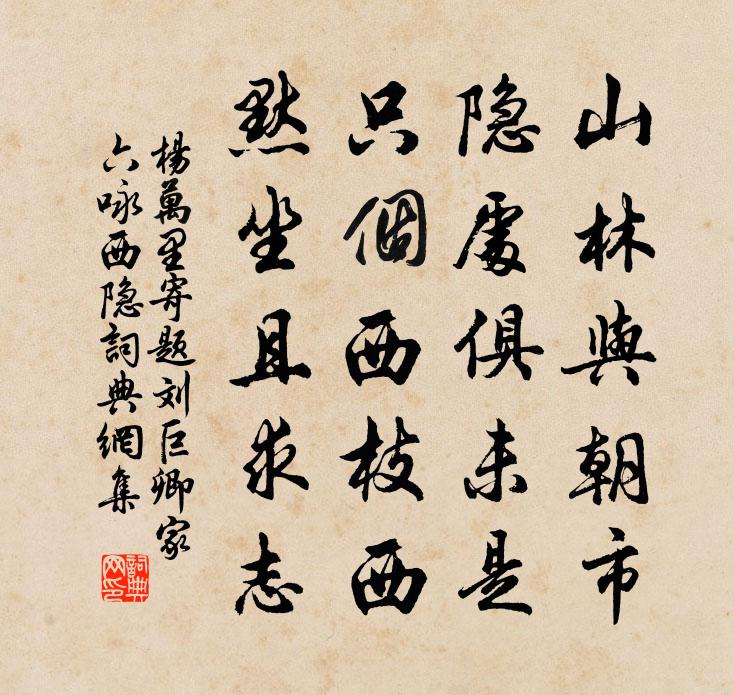 山林與朝市
隐處俱未是
只個西枝西
默坐且求志
楊萬里寄题刘巨卿家
六咏西隐詞典網集
詞典网印